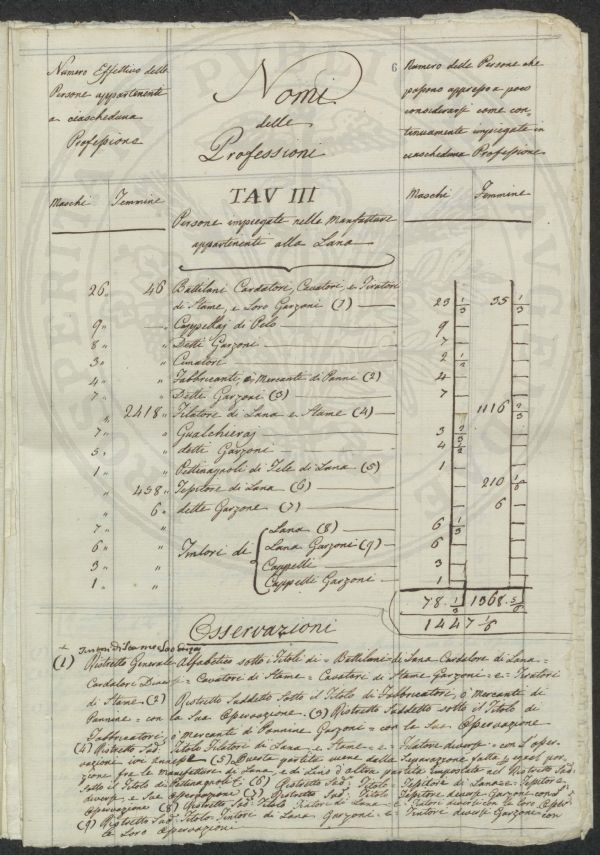 6
Numero Effettivo delle
Persone appartenente
a ciascheduna
Professione
Nomi
delle
Professioni
Numero delle Persone che
possono appresso a poco
considerarsi come con-
tinuamente impiegate in
ciascheduna Professione
Maschi Femmine
TAV III
Maschi Femmine
Persone impiegate nelle Manifatture
appartenenti alla Lana
26 46 Battilani Cardatori, Cavatori, e Tiratori
di Stame, e Loro Garzoni (1) 23 1/3 35 1/3
9 Cappellaj di Pelo 9
8 Detti Garzoni 7
3 Cimatore 2 1/2
4 Fabbricanti o Mercanti di Panni (2) 4
7 Detti Garzoni (3) 7
2418 Filatore di Lana e Stame (4) 1116 2/3
7 Gualchieraj 3 2/3
5 detti Garzoni 4 1/2
1 Pettinagnoli di Tele di Lana (5) 1
458 Tessitore di Lana (6) 210 1/6
6 dette Garzone (7) 6
7 Tintori di Lana (8) 6 1/3
6 Lana Garzoni (9) 6
3 Cappelli 3
1 Cappelli Garzoni 1
78 1/3 1368 5/6
1447 1/6
Osservazioni
(1) Ristretto Generale Alfabetico sotto i Titoli di = Battilani di Lana Cardatore di Lana =
Cardatori Diversi = Cavatore di Stame = Cavatori di Stame Garzoni = e Tiratori
di Stame. (2) Ristretto Suddetto Sotto il Titolo di Fabbricatori, o Mercanti di
Pannine = con la Sua Osservazione. (3) Ristretto Suddetto sotto il Titolo di
Fabbricatori, o Mercanti di Pannine Garzoni = con la Sua Osservazione
(4) Ristretto Sud. Titolo Filatori di Lana e Stame = e Filatori diversi = con L'osser-
vazione ivi annessa (5) Questa partita viene dalla Separazione fatta per
zione fra le manifatture di Lana, e di Lino d'altra partita impostata nel Ristretto Sud.
sotto il Titolo di Pettinagnoli (6) Ristretto Sud. Titolo Tessitore di Lana = e Tessitore
diverse e Sua Osservazione (7) Ristretto Sud. Titolo Tessitore diverse Garzone con
Osservazione (8) Ristretto Sud. Titolo Tintori di Lana = e Tintori diversi con la loro Osser-
(9) Ristretto Sud. Titolo Tintore di Lana Garzoni = e Tintore diversi Garzone con
le Loro Osservazioni